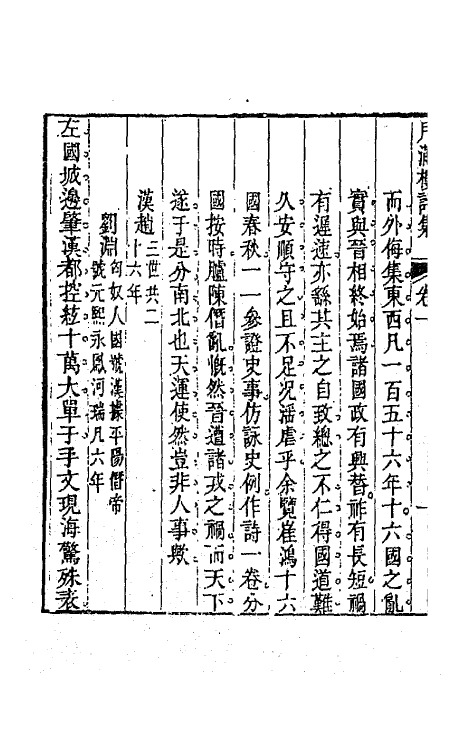 月滿樓詩集 卷一
而外侮集東西凡一百五十六年十六國之亂
實與晉相終始焉諸國政有興替祚有長短禍
有遲速亦繇其主之自致總之不仁得國道難
久安順守之且不足况滛虐乎余覽崔鴻十六
國春秋一一參證史事仿詠史例作詩一卷分
國按時臚陳僭亂慨然晉遭諸戎之禍而天下
遂于是分南北也天運使然豈非人事歟
漢趙三世共二十六年
劉淵匈奴人國號漢據平陽僭帝號元熙永鳳河瑞凡六年
左國城邊肇漢都控絃十萬大單于手文現海驚殊表